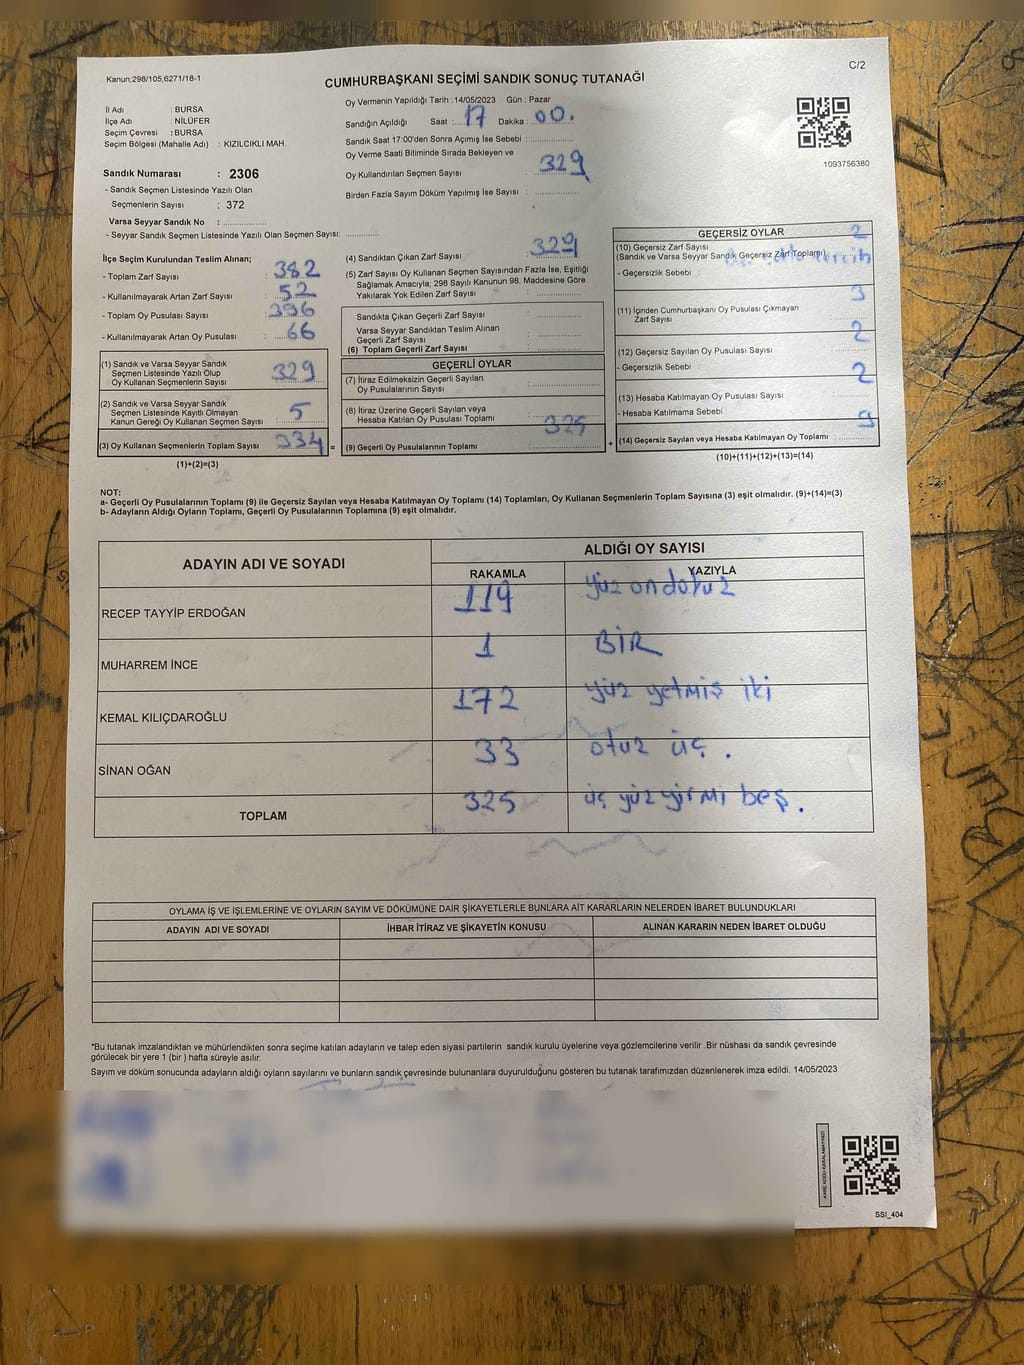 Kanun;298/105,6271/18-1
C/2
CUMHURBAŞKANI SEÇİMİ SANDIK SONUÇ TUTANAĞI
İl Adı : BURSA
İlçe Adı : NİLÜFER
Seçim Çevresi : BURSA
Seçim Bölgesi (Mahalle Adı) : KIZILCIKLI MAH.
Oy Vermenin Yapıldığı Tarih : 14/05/2023 Gün : Pazar
Sandığın Açıldığı Saat : 17 Dakika : 00.
Sandık Saat 17:00'den Sonra Açımış İse Sebebi :
Oy Verme Saati Bitiminde Sırada Bekleyen ve
Oy Kullandırılan Seçmen Sayısı : 329
Birden Fazla Sayım Döküm Yapılmış İse Sayısı :
1093756380
Sandık Numarası : 2306
- Sandık Seçmen Listesinde Yazılı Olan
Seçmenlerin Sayısı : 372
Varsa Seyyar Sandık No :
- Seyyar Sandık Seçmen Listesinde Yazılı Olan Seçmen Sayısı:
İlçe Seçim Kurulundan Teslim Alınan;
- Toplam Zarf Sayısı : 382
- Kullanılmayarak Artan Zarf Sayısı : 52
- Toplam Oy Pusulası Sayısı : 396
- Kullanılmayarak Artan Oy Pusulası : 66
(1) Sandık ve Varsa Seyyar Sandık
Seçmen Listesinde Yazılı Olup
Oy Kullanan Seçmenlerin Sayısı : 329
(2) Sandık ve Varsa Seyyar Sandık
Seçmen Listesinde Kayıtlı Olmayan
Kanun Gereği Oy Kullanan Seçmen Sayısı : 5
(3) Oy Kullanan Seçmenlerin Toplam Sayısı : 334 =
(1)+(2)=(3)
(4) Sandıktan Çıkan Zarf Sayısı : 329
(5) Zarf Sayısı Oy Kullanan Seçmen Sayısından Fazla İse, Eşitliği
Sağlamak Amacıyla; 298 Sayılı Kanunun 98. Maddesine Göre
Yakılarak Yok Edilen Zarf Sayısı :
Sandıkta Çıkan Geçerli Zarf Sayısı :
Varsa Seyyar Sandıktan Teslim Alınan
Geçerli Zarf Sayısı :
(6) Toplam Geçerli Zarf Sayısı :
GEÇERLİ OYLAR
(7) İtiraz Edilmeksizin Geçerli Sayılan
Oy Pusulalarının Sayısı :
(8) İtiraz Üzerine Geçerli Sayılan veya
Hesaba Katılan Oy Pusulası Toplamı : 325
(9) Geçerli Oy Pusulalarının Toplamı : +
GEÇERSİZ OYLAR
(10) Geçersiz Zarf Sayısı 2
(Sandık ve Varsa Seyyar Sandık Geçersiz Zarf Toplamı):
- Geçersizlik Sebebi :
3
(11) İçinden Cumhurbaşkanı Oy Pusulası Çıkmayan
Zarf Sayısı
2
(12) Geçersiz Sayılan Oy Pusulası Sayısı
- Geçersizlik Sebebi : 2
(13) Hesaba Katılmayan Oy Pusulası Sayısı
- Hesaba Katılmama Sebebi : 9
(14) Geçersiz Sayılan veya Hesaba Katılmayan Oy Toplamı :
(10)+(11)+(12)+(13)=(14)
NOT:
a- Geçerli Oy Pusulalarının Toplamı (9) ile Geçersiz Sayılan veya Hesaba Katılmayan Oy Toplamı (14) Toplamları, Oy Kullanan Seçmenlerin Toplam Sayısına (3) eşit olmalıdır. (9)+(14)=(3)
b- Adayların Aldığı Oyların Toplamı, Geçerli Oy Pusulalarının Toplamına (9) eşit olmalıdır.
ADAYIN ADI VE SOYADI
ALDIĞI OY SAYISI
RAKAMLA YAZIYLA
RECEP TAYYİP ERDOĞAN 119 yüz ondokuz
MUHARREM İNCE 1 BİR
KEMAL KILIÇDAROĞLU 172 yüz yetmiş iki
SİNAN OĞAN 33 otuz üç.
TOPLAM 325 üç yüz yirmi beş.
OYLAMA İŞ VE İŞLEMLERİNE VE OYLARIN SAYIM VE DÖKÜMÜNE DAİR ŞİKAYETLERLE BUNLARA AİT KARARLARIN NELERDEN İBARET BULUNDUKLARI
ADAYIN ADI VE SOYADI İHBAR İTİRAZ VE ŞİKAYETİN KONUSU ALINAN KARARIN NEDEN İBARET OLDUĞU
*Bu tutanak imzalandıktan ve mühürlendikten sonra seçime katılan adayların ve talep eden siyasi partilerin sandık kurulu üyelerine veya gözlemcilerine verilir .Bir nüshası da sandık çevresinde
görülecek bir yere 1 (bir ) hafta süreyle asılır.
Sayım ve döküm sonucunda adayların aldığı oyların sayılarını ve bunların sandık çevresinde bulunanlara duyurulduğunu gösteren bu tutanak tarafımızdan düzenlenerek imza edildi. 14/05/2023
KARE KODU KARALAMAYINIZ!
SSI_404